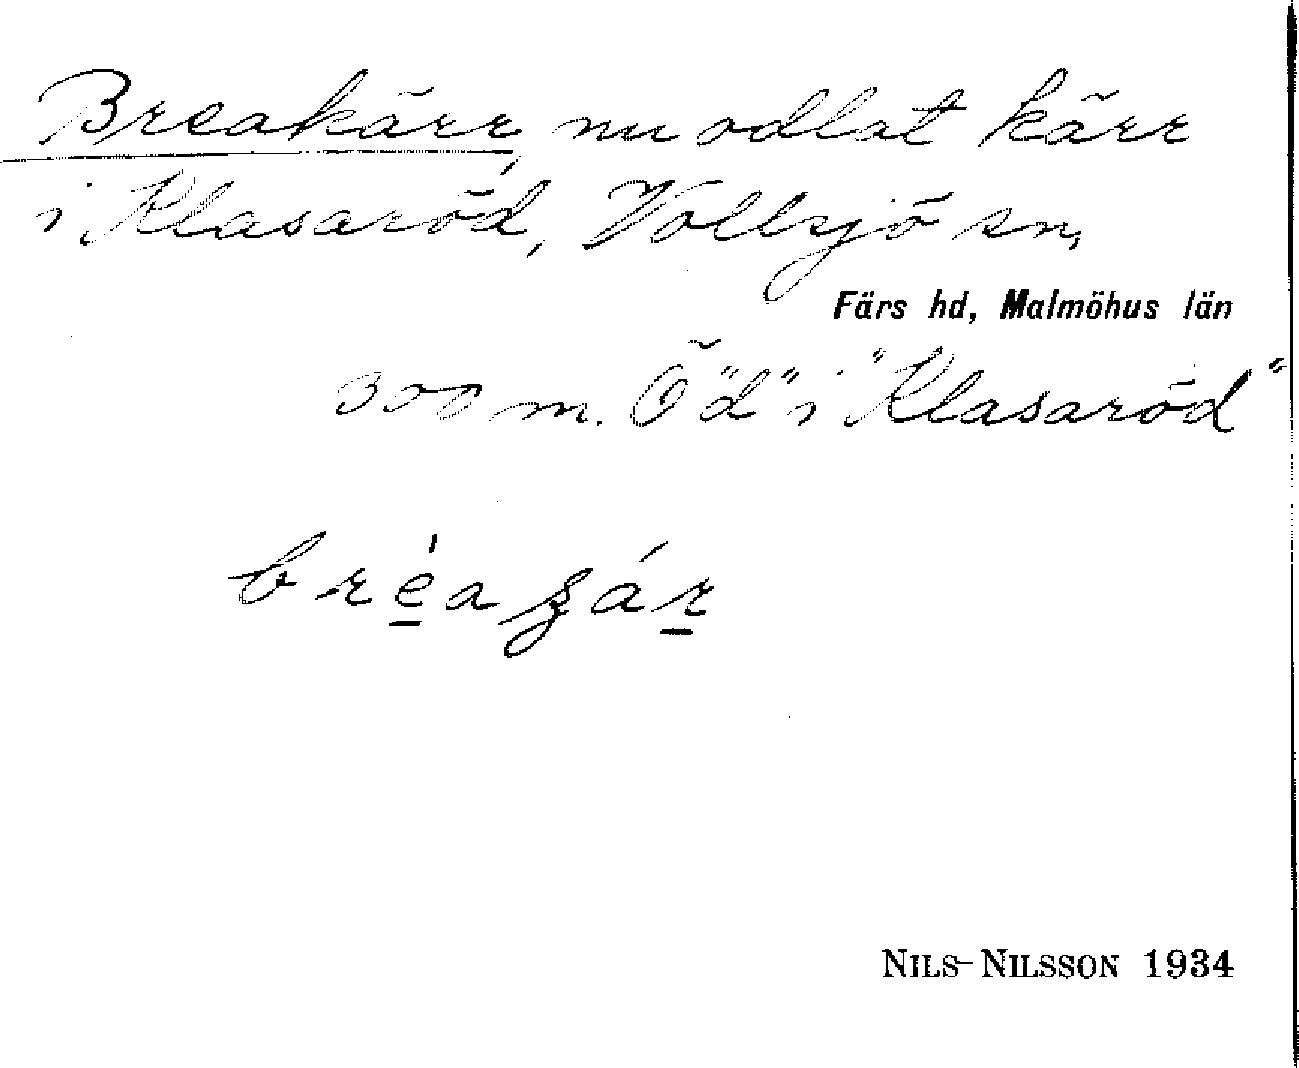 Breakärr, nu odlat kärr
i Klasaröd, Vollsjö sn,
Färs hd, Malmöhus län
300 m. Ö "d" i "Klasaröd"
NILS-NILSSON 1934